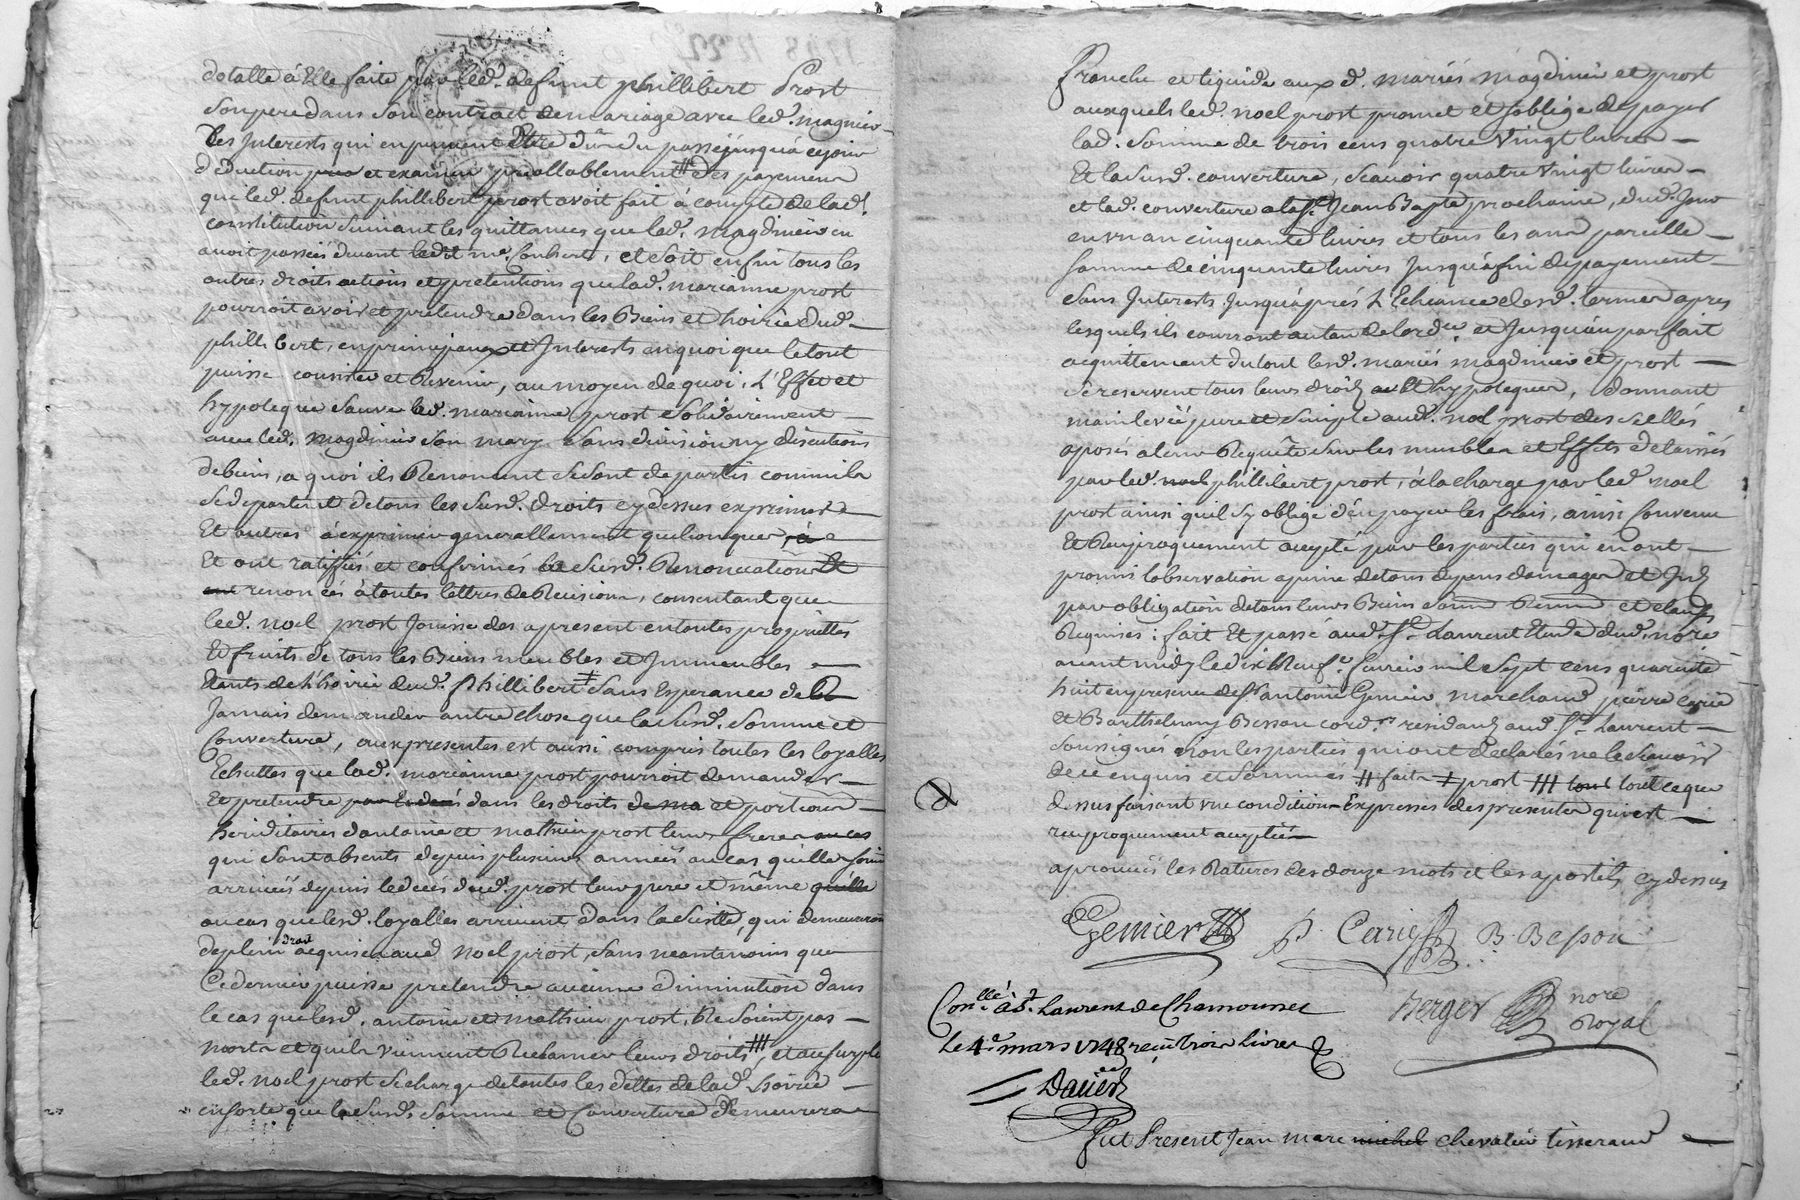 dotalle à Elle faite par led. defunt phillibert Prost
son pere dans son contract de mariage avec led. magnier
les Interests qui en peuvent Etre du du passé jusqua ce jour
déduction et examen preallablement # des payemens
que led. defunt phillibert prost avoit fait à compte de lad.
constitution suivant les quittances que led. magdinier en
avoit passées devant ledit me. , et soit enfin tous les
autres droits actions et pretentions que lad. marianne prost
pourroit avoir et pretendre dans les Biens et hoirie dud.
phillibert, en principaux et Interests en quoi que le tout
puisse consister et Revenir, au moyen de quoi, L'Effet et
hypoteque sauve lad. marianne prost solidairement
avec led. magdinier son mary sans division ny discution
de biens, a quoi ils Renoncent se sont departis comme ils
se departent de tous les susd. droits cy dessus exprimés
Et autres à exprimer generallement quelconques, à
Et ont ratiffiés et confirmés la susd. Renonciation Et
ont renoncés à toutes lettres de Recision, consentant que
led. noel prost Jouisse des apresent en toutes proprietés
Et fruits de tous les Biens meubles et Immeubles
Etants de l'hoirie dud. Phillibert ‡ sans Esperance de R
Jamais demander autre chose que la susd. somme et
Couverture, aux presentes est aussi compris toutes les loyalles
Echuttes que lad. marianne prost pourroit demander
Et pretendre dans les droits de ma et portions
heriditaires dantoine et mathieu prost leurs freres au cas
qui sont absents depuis plusieurs années au cas quelles soint
arrivées depuis le decés dud. prost leur pere et même quelles
au cas que lesd. loyalles arrivent dans la suitte, qui demeureront
de plein droit acquises aud noel prost, sans neantmoins que
Ce dernier puisse pretendre aucune diminution dans
le cas que lesd. antoine et mathieu prost, Ne soient pas
morts et quils viennent Reclamer leurs droits ###, et au surplus
led. noel prost se charge de toutes les dettes de lad. hoirie
en sorte que la susd. somme et Couverture demeurera
franche et liquide aux d. mariés magdinier et prost
auxquels led. noel prost promet et soblige de payer
lad. somme de trois cens quatre Vingt livres
Et la susd. couverture, scavoir quatre Vingt livres
et lad. couverture a la st. Jean Bapte prochaine, dud. Jour
en un an cinquante livres et tous les ans pareille
somme de cinquante livres Jusqu'à fin de payement
sans Interests Jusqu'après L'Echeance desd. termes apres
lesquels ils courront au tau de lord.ce et Jusqu'au parfait
acquittement du tout lesd. mariés magdinier et prost
se reservent tous leurs droits et hypoteques, donnant
main levée pure et simple aud. noel prost des scellés
aposés a leur Requête sur les meubles et Effets delaissés
par led. noel phillibert prost, à la charge par led. noel
prost ainsi quil sy oblige d'en payer les frais, ainsi Convenu
Et Reciproquement accepté par les parties qui en ont
promis lobservation a peine de tous depens damages et Int.
par obligation de tous leurs Biens et clauses
Requises: fait Et passé aud. st. Laurent Etude dud. nore
avant midy le dix Neuf.e fevrier mil sept cens quarante
huit en presence de sr antoine Gemier marchand, pierre Carie
et Barthelemy Besson cord.rs residants aud. st. Laurent
soussignés non les parties qui ont declarés ne le scavoir
de ce enquis et sommés # faite ‡ prost ### tout tout ce que
dessus faisant vue conditions Expresses des presentes qui est
reciproquement acceptée
aprouvés les Ratures des douze mots et les apostils cy dessus
Gemier P. Carie B. Besson
Berger nore Royal
Con.llé à St. Laurens de Chamousset
Le 4e mars 1748 reçu trois livres
Davier
fut Present Jean marc michel chevalier tisserand